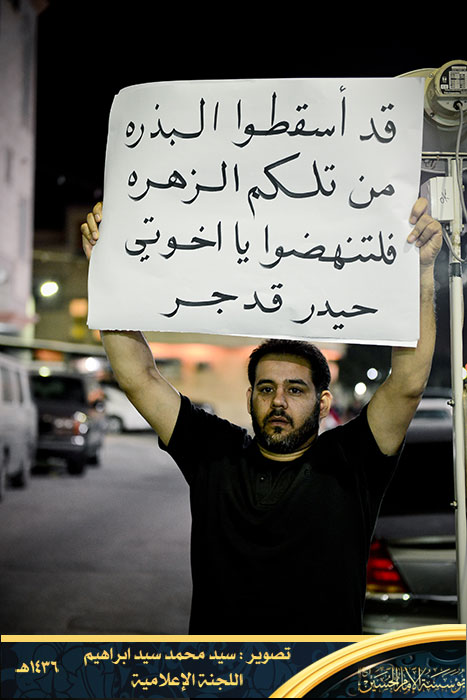 قد أسقطوا البذره
من تلكم الزهره
فلتنهضوا يا اخوتي
حيدر قد جر
تصوير : سيد محمد سيد ابراهيم
اللجنة الإعلامية
١٤٣٦هـ
مؤسسة الإمام الحسين